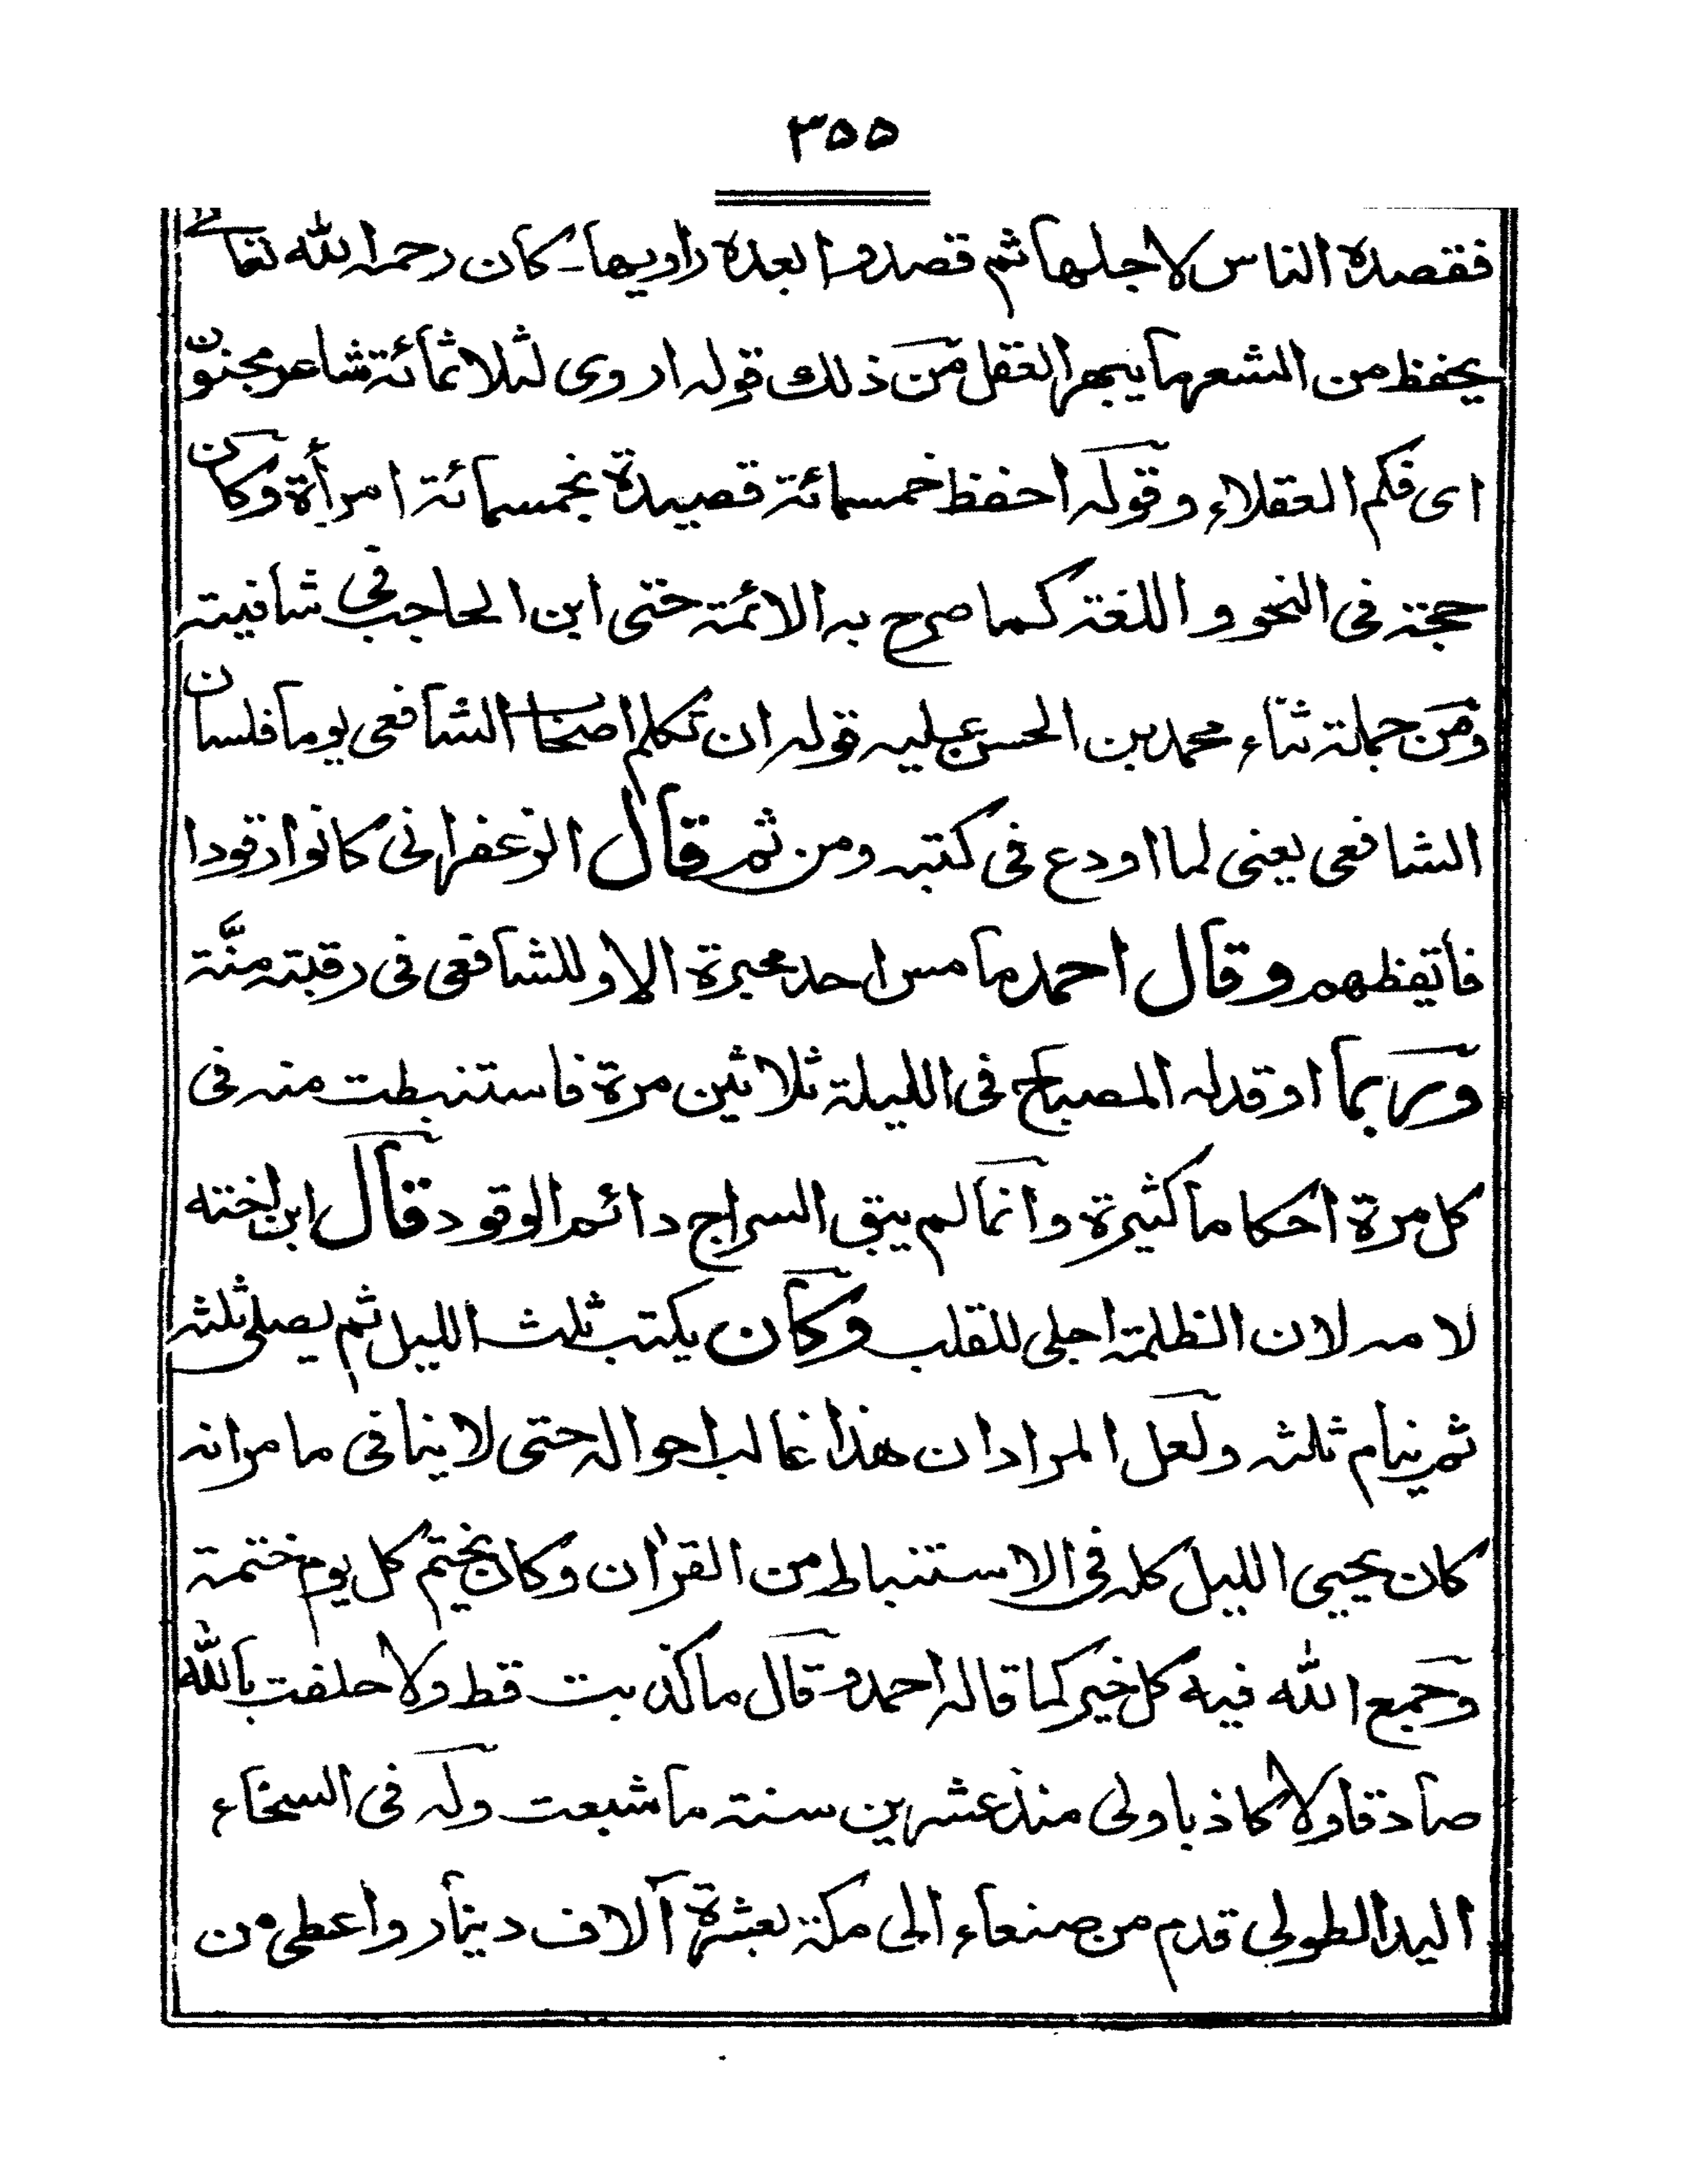 ٣٥٥
فقصده الناس لاجلها ثم قصدوا بعده راويها ـ كان رحمه الله تعالى
يحفظ من الشعر ما يبهر العقل من ذلك قوله اروى لثلاثمائة شاعر مجنون
اى فكم العقلاء وقوله احفظ خمسمائة قصيدة بخمسمائة امرأة وكان
حجة فى النحو و اللغة كما صرح به الائمة حتى ابن الحاجب فى شافيته
ومن جملة ثناء محمد بن الحسن عليه قوله ان تكلم اصحاب الشافعى يوما فلسان
الشافعى يعنى لما اودع فى كتبه ومن ثم قال الزعفرانى كانوا رقودا
فايقظهم وقال احمد ما مس احد محبرة الا وللشافعى فى رقبته منّة
وربما اوقد له المصباح فى الليلة ثلاثين مرة فاستنبطت منه فى
كل مرة احكاما كثيرة وانما لم يبق السراج دائم الوقود قال ابن اخته
لامه لان الظلمة اجلى للقلب وكان يكتب ثلث الليل ثم يصلى ثلثه
ثم ينام ثلثه ولعل المراد ان هذا غالب احواله حتى لا ينافى ما مر انه
كان يحيى الليل كله فى الاستنباط من القران وكان يختم كل يوم ختمة
وجمع الله فيه كل خير كما قاله احمد وقال ما كذبت قط ولا حلفت بالله
صادقا ولا كاذبا ولى منذ عشرين سنة ما شبعت وله فى السخاء
اليد الطولى قدم من صنعاء الى مكة بعشرة آلاف دينار واعطى من